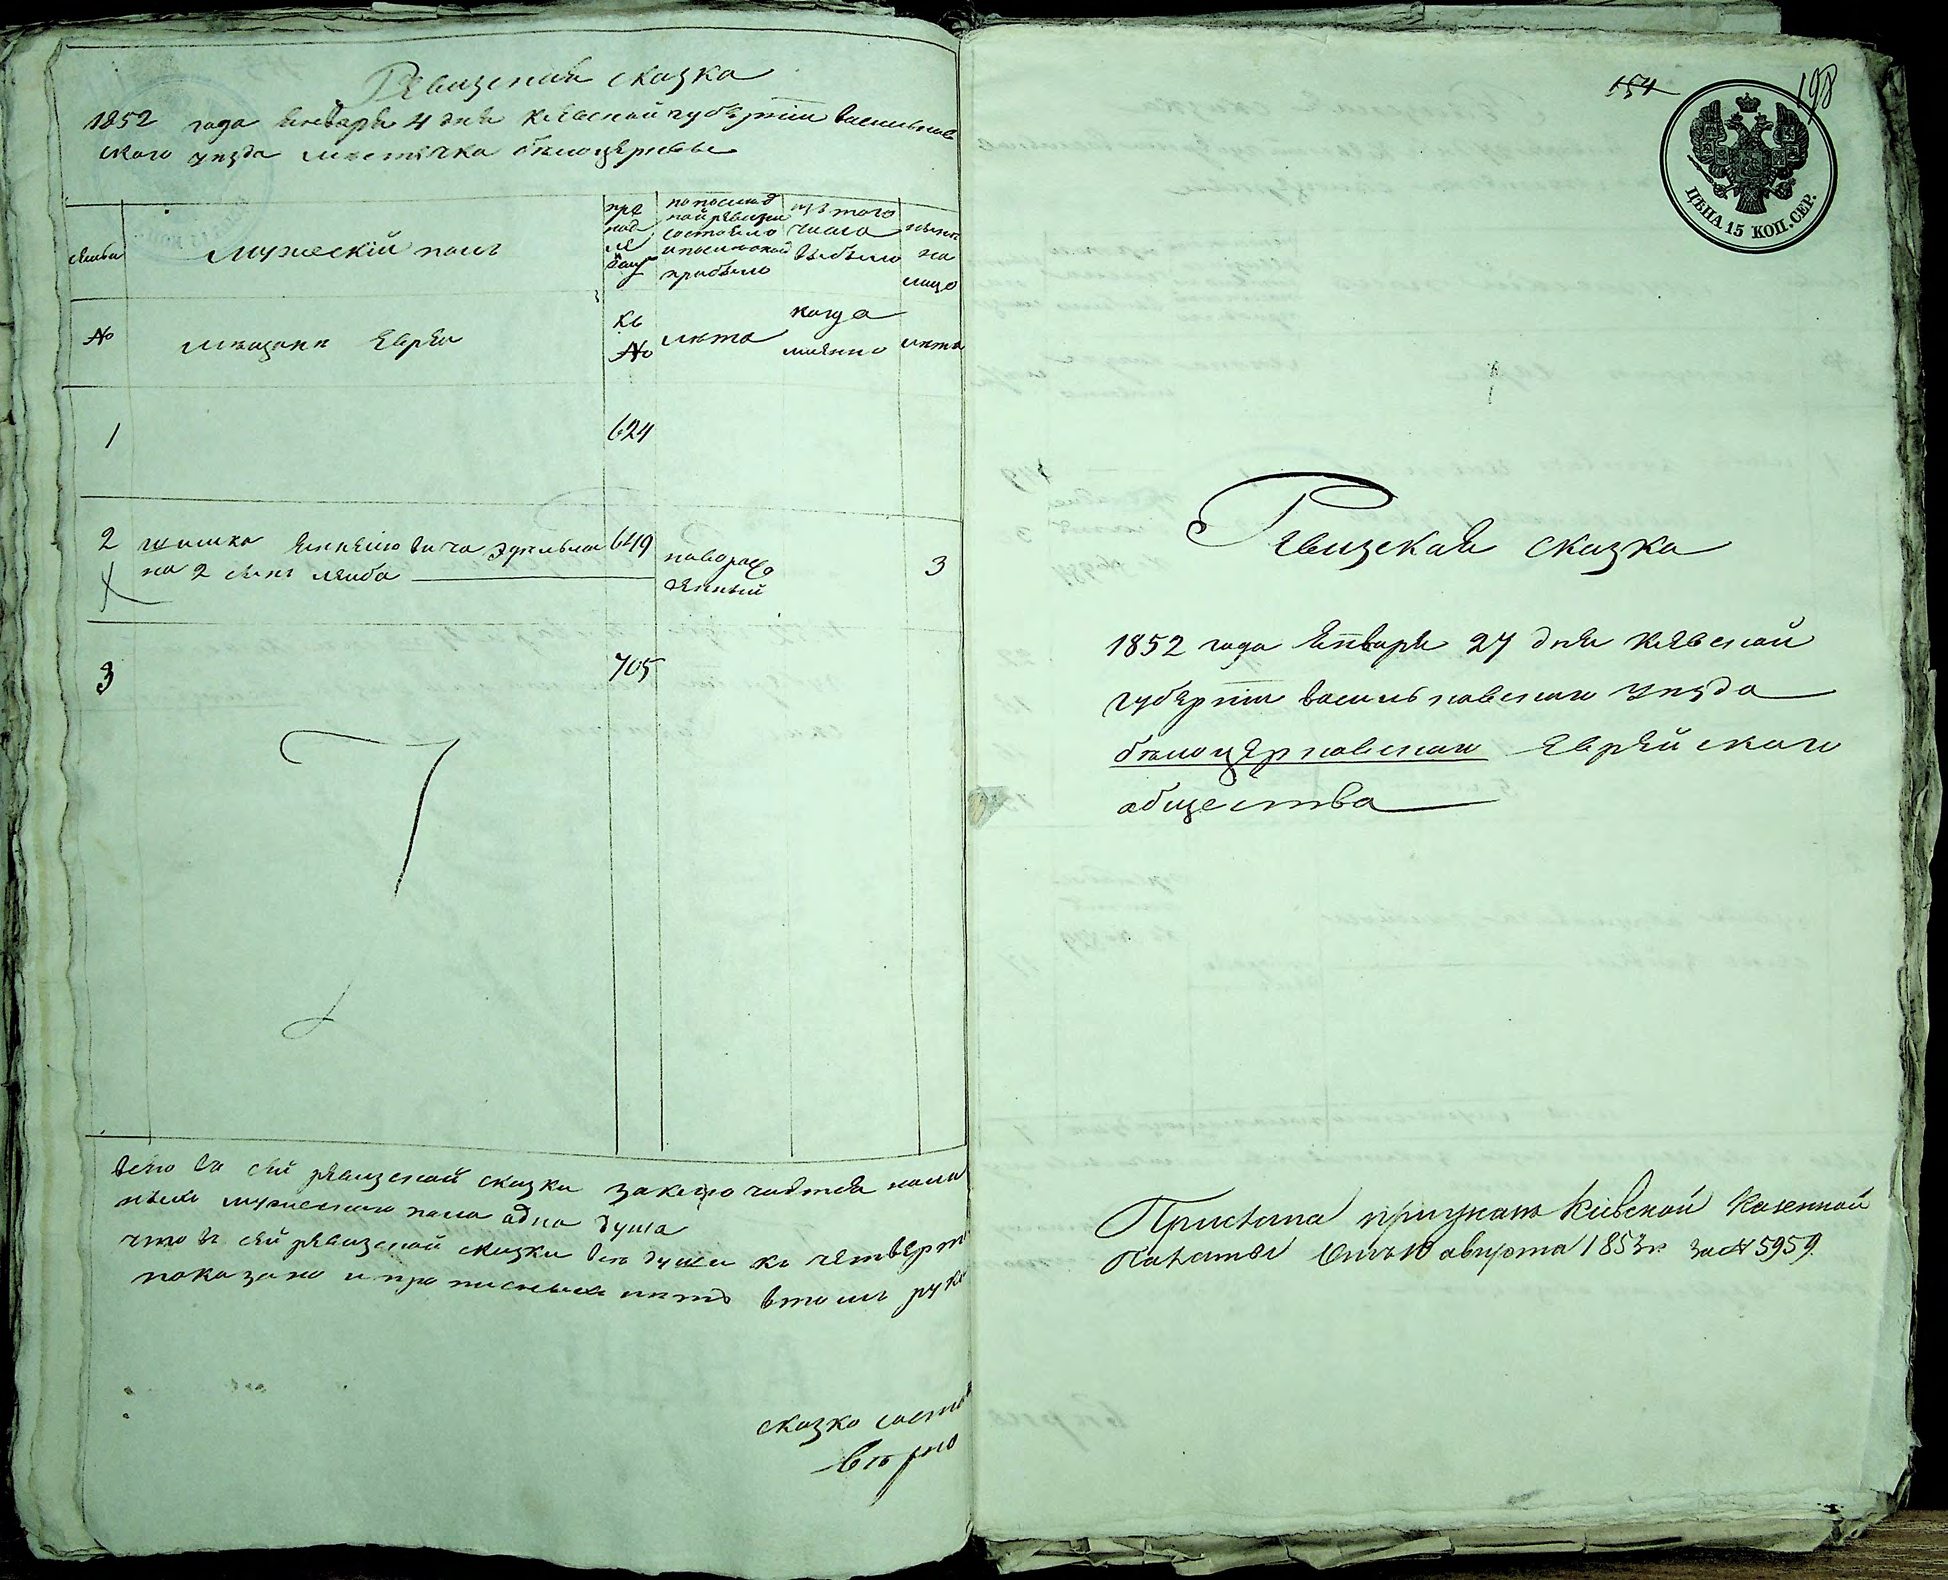 Ревизская сказка
1852 года Января 4 дня Киевской губернии васильков
ского уезда местечка белоцеркве
семьи
Мужескій полъ
по послед
ней ревизи
состояло
и после оной
прибыло
изъ того
числа
выбыло
ныне
на
лицо
№
мещане Евреи
къ
№
лета
когда
именно
лета
1
624
2
649
на 2 сынъ лейба
новорож
денный
3
3
705
всего в сей ревизской сказки заключается нали
мужеского пола одна душа
что в сей ревизской сказки все души к четверт
показано и прописных нетъ в томъ рук
сказко соста
верно
154
198
ЦѢНА 15 КОП. СЕР.
Ревизская сказка
1852 года Января 27 дня Киевской
губернии васильковского уезда
белоцерковского Еврейского
общества
Прислана при указе Кіевской Казенной
Палаты отъ 10 августа 1853 г. за № 5959.